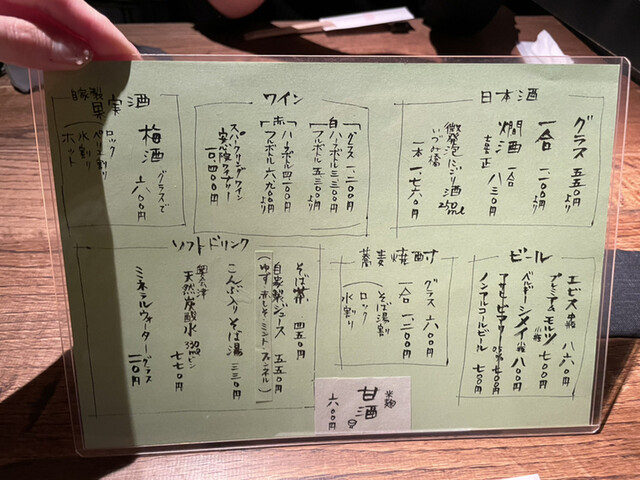 日本酒
グラス 五五〇円より
一合 一、一〇〇円より
燗酒 一合 八三〇円
微発泡にごり酒
いづみ橋
一本 一、七六〇円
ワイン
グラス 一、二〇〇円
白
ハーフボトル 三、三〇〇円
フルボトル 五、三〇〇円より
赤
ハーフボトル 四、一〇〇円
フルボトル 六、九〇〇円より
スパークリングワイン
一〇、四〇〇円
自家製
果実酒
梅酒 グラスで 六〇〇円
ロック
水割り
ホット
ビール
エビス 中瓶 八六〇円
プレミアムモルツ 小瓶 七〇〇円
小瓶 八〇〇円
ノンアルコールビール 七〇〇円
蕎麦焼酎
グラス 六〇〇円
一合 一、二〇〇円
そば湯割り
ロック
水割り
ソフトドリンク
そば茶 四五〇円
自家製ジュース 五五〇円
(ゆず 赤しそ ミント フェンネル)
こんぶ入りそば湯 三三〇円
奥会津
天然炭酸水 ビン 七七〇円
ミネラルウォーター グラス 一一〇円
米麹
甘酒
六〇〇円